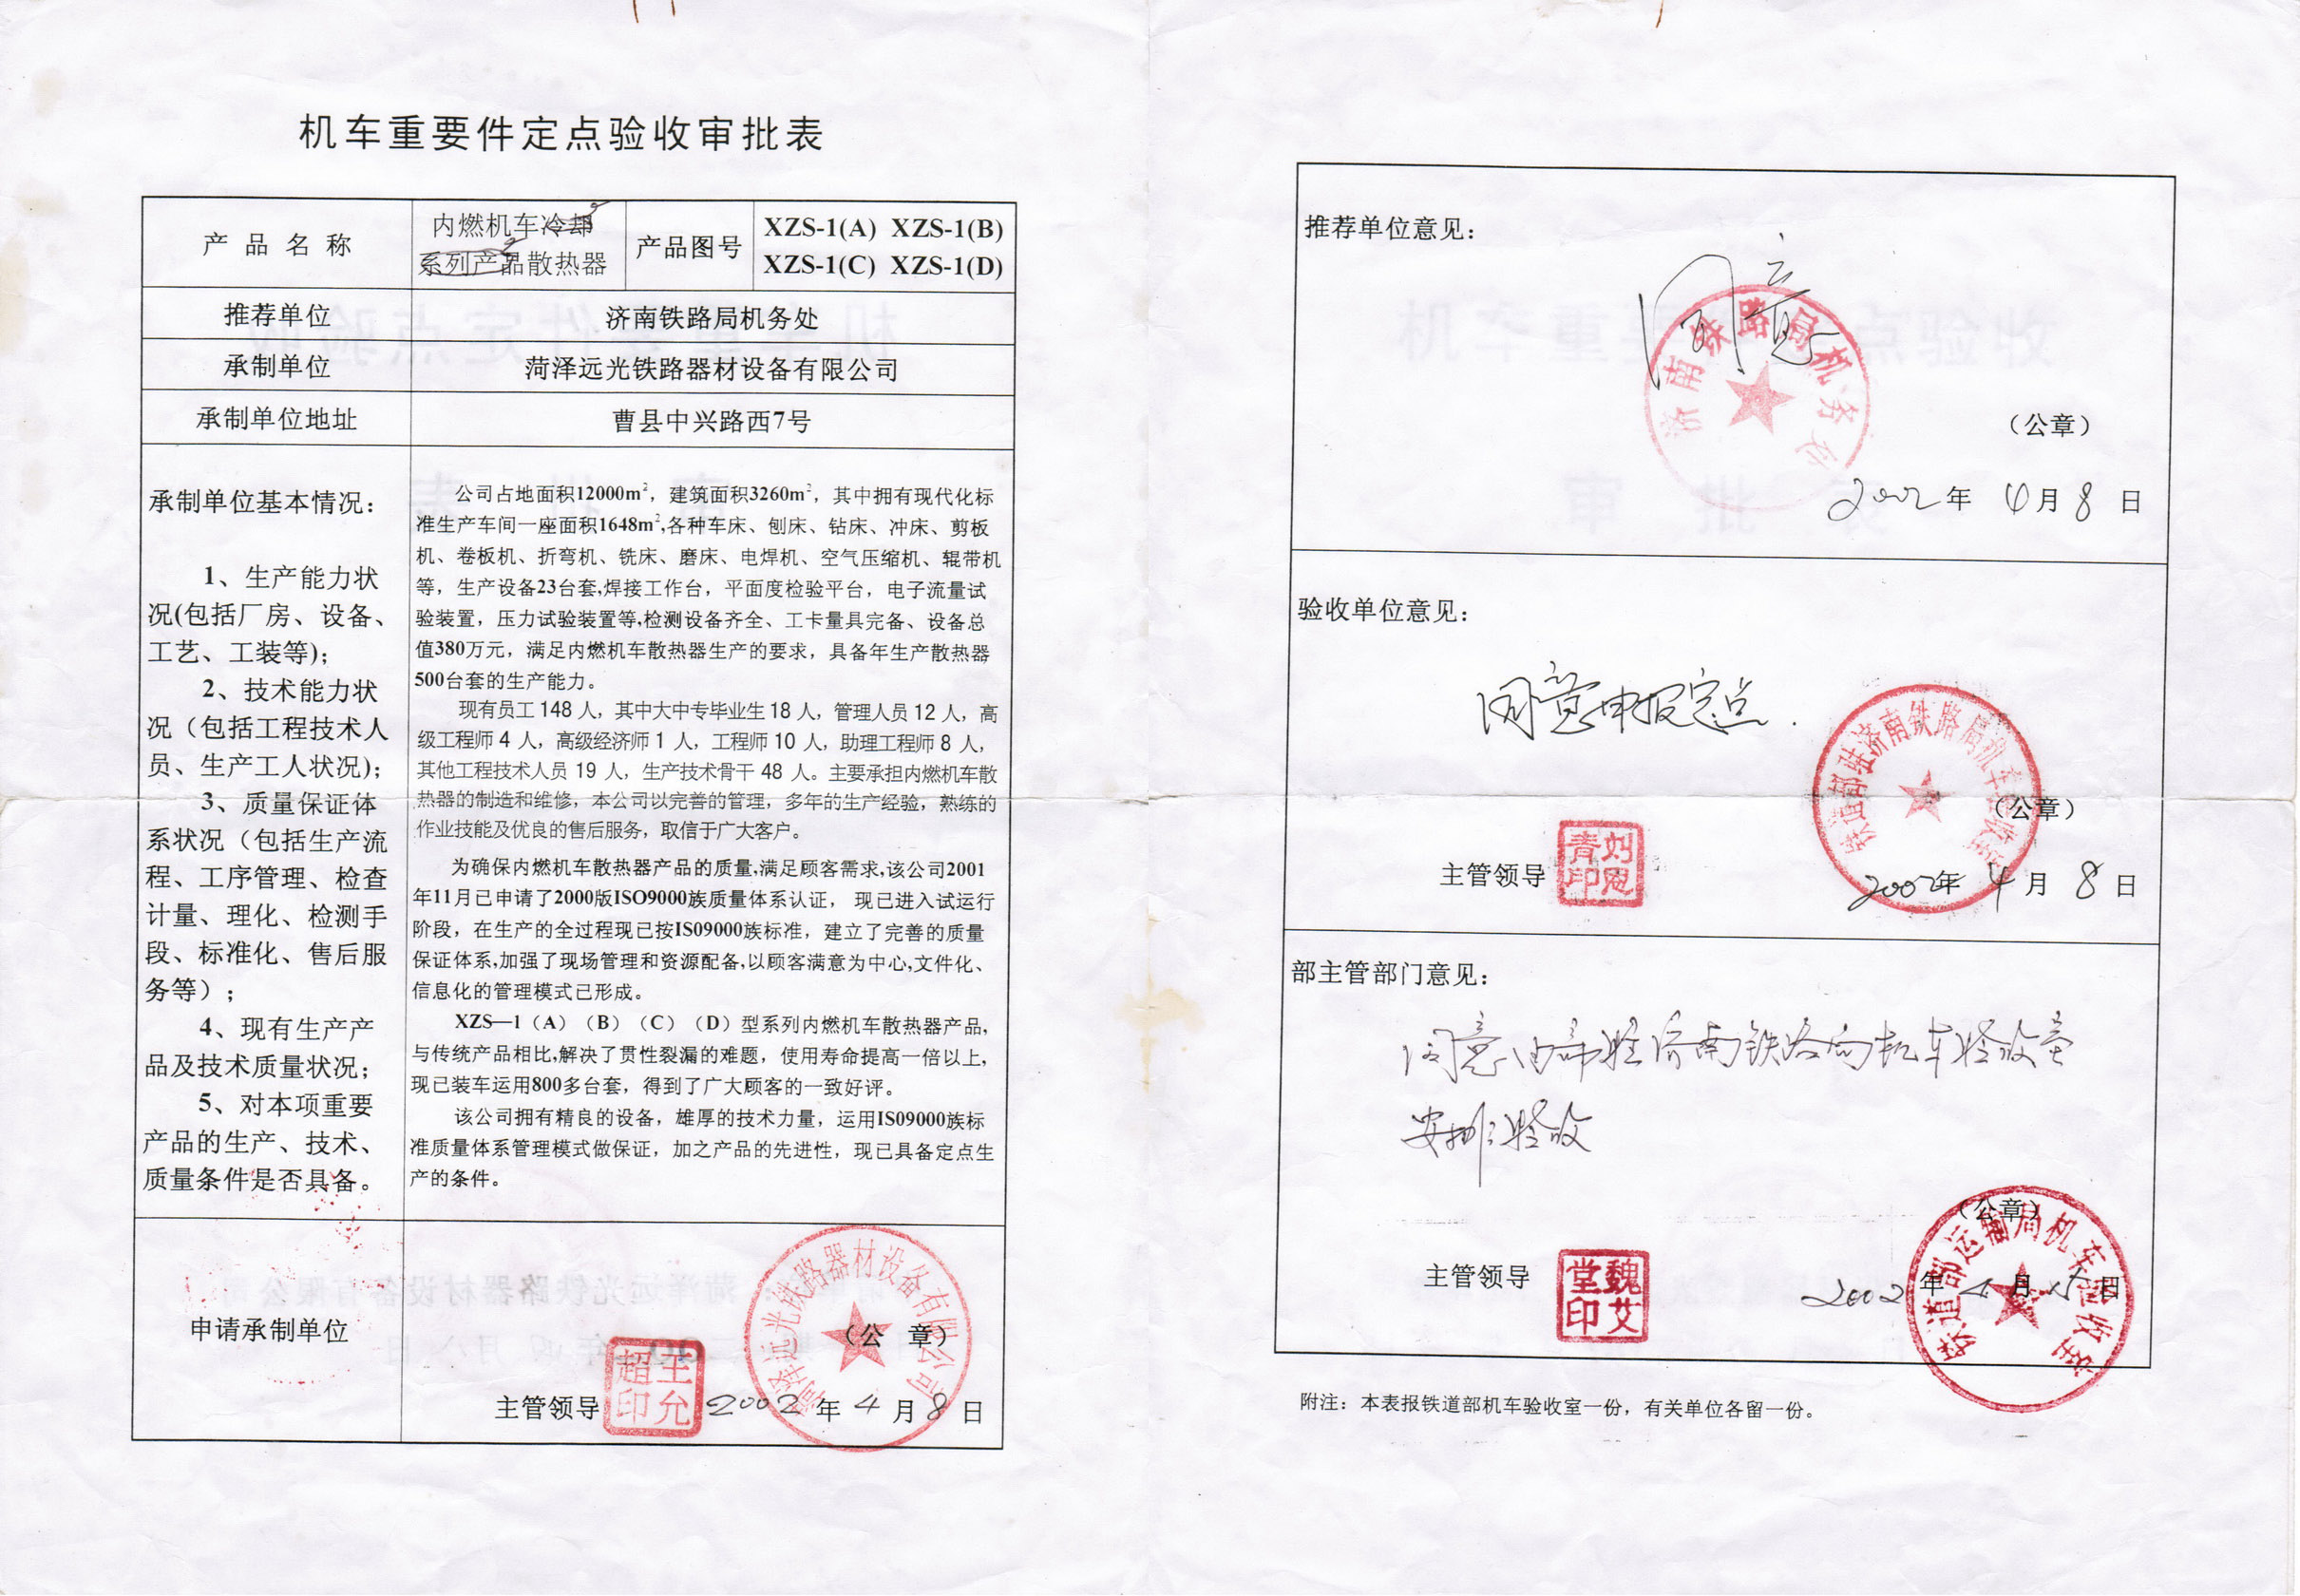 机车重要件定点验收审批表
产品名称
内燃机车冷却
系列产品散热器
产品图号
XZS-1(A) XZS-1(B)
XZS-1(C) XZS-1(D)
推荐单位
济南铁路局机务处
承制单位
菏泽远光铁路器材设备有限公司
承制单位地址
曹县中兴路西7号
承制单位基本情况：
1、生产能力状
况(包括厂房、设备、
工艺、工装等)；
2、技术能力状
况（包括工程技术人
员、生产工人状况)；
3、质量保证体
系状况（包括生产流
程、工序管理、检查
计量、理化、检测手
段、标准化、售后服
务等）；
4、现有生产产
品及技术质量状况；
5、对本项重要
产品的生产、技术、
质量条件是否具备。
公司占地面积12000m²，建筑面积3260m²，其中拥有现代化标
准生产车间一座面积1648m²,各种车床、刨床、钻床、冲床、剪板
机、卷板机、折弯机、铣床、磨床、电焊机、空气压缩机、辊带机
等，生产设备23台套,焊接工作台，平面度检验平台，电子流量试
验装置，压力试验装置等,检测设备齐全、工卡量具完备、设备总
值380万元，满足内燃机车散热器生产的要求，具备年生产散热器
500台套的生产能力。
现有员工148人，其中大中专毕业生18人，管理人员12人，高
级工程师4人，高级经济师1人，工程师10人，助理工程师8人，
其他工程技术人员19人，生产技术骨干48人。主要承担内燃机车散
热器的制造和维修，本公司以完善的管理，多年的生产经验，熟练的
作业技能及优良的售后服务，取信于广大客户。
为确保内燃机车散热器产品的质量,满足顾客需求,该公司2001
年11月已申请了2000版ISO9000族质量体系认证， 现已进入试运行
阶段，在生产的全过程现已按IS09000族标准，建立了完善的质量
保证体系,加强了现场管理和资源配备,以顾客满意为中心,文件化、
信息化的管理模式已形成。
XZS—1（A）（B）（C）（D）型系列内燃机车散热器产品,
与传统产品相比,解决了贯性裂漏的难题，使用寿命提高一倍以上,
现已装车运用800多台套，得到了广大顾客的一致好评。
该公司拥有精良的设备，雄厚的技术力量，运用IS09000族标
准质量体系管理模式做保证，加之产品的先进性，现已具备定点生
产的条件。
申请承制单位
菏泽远光铁路器材设备有限公司
（公 章）
主管领导
王允超印
2002年4月8日
推荐单位意见：
同意
济南铁路局机务处
（公章）
2002年4月8日
验收单位意见：
同意申报定点.
铁道部驻济南铁路局机车验收室
（公章）
主管领导
刘恩青印
2002年4月8日
部主管部门意见：
同意由部驻济南铁路局机车验收室
安排验收
（公章）
铁道部运输局机车验收室
主管领导
魏艾堂印
2002年4月15日
附注：本表报铁道部机车验收室一份，有关单位各留一份。